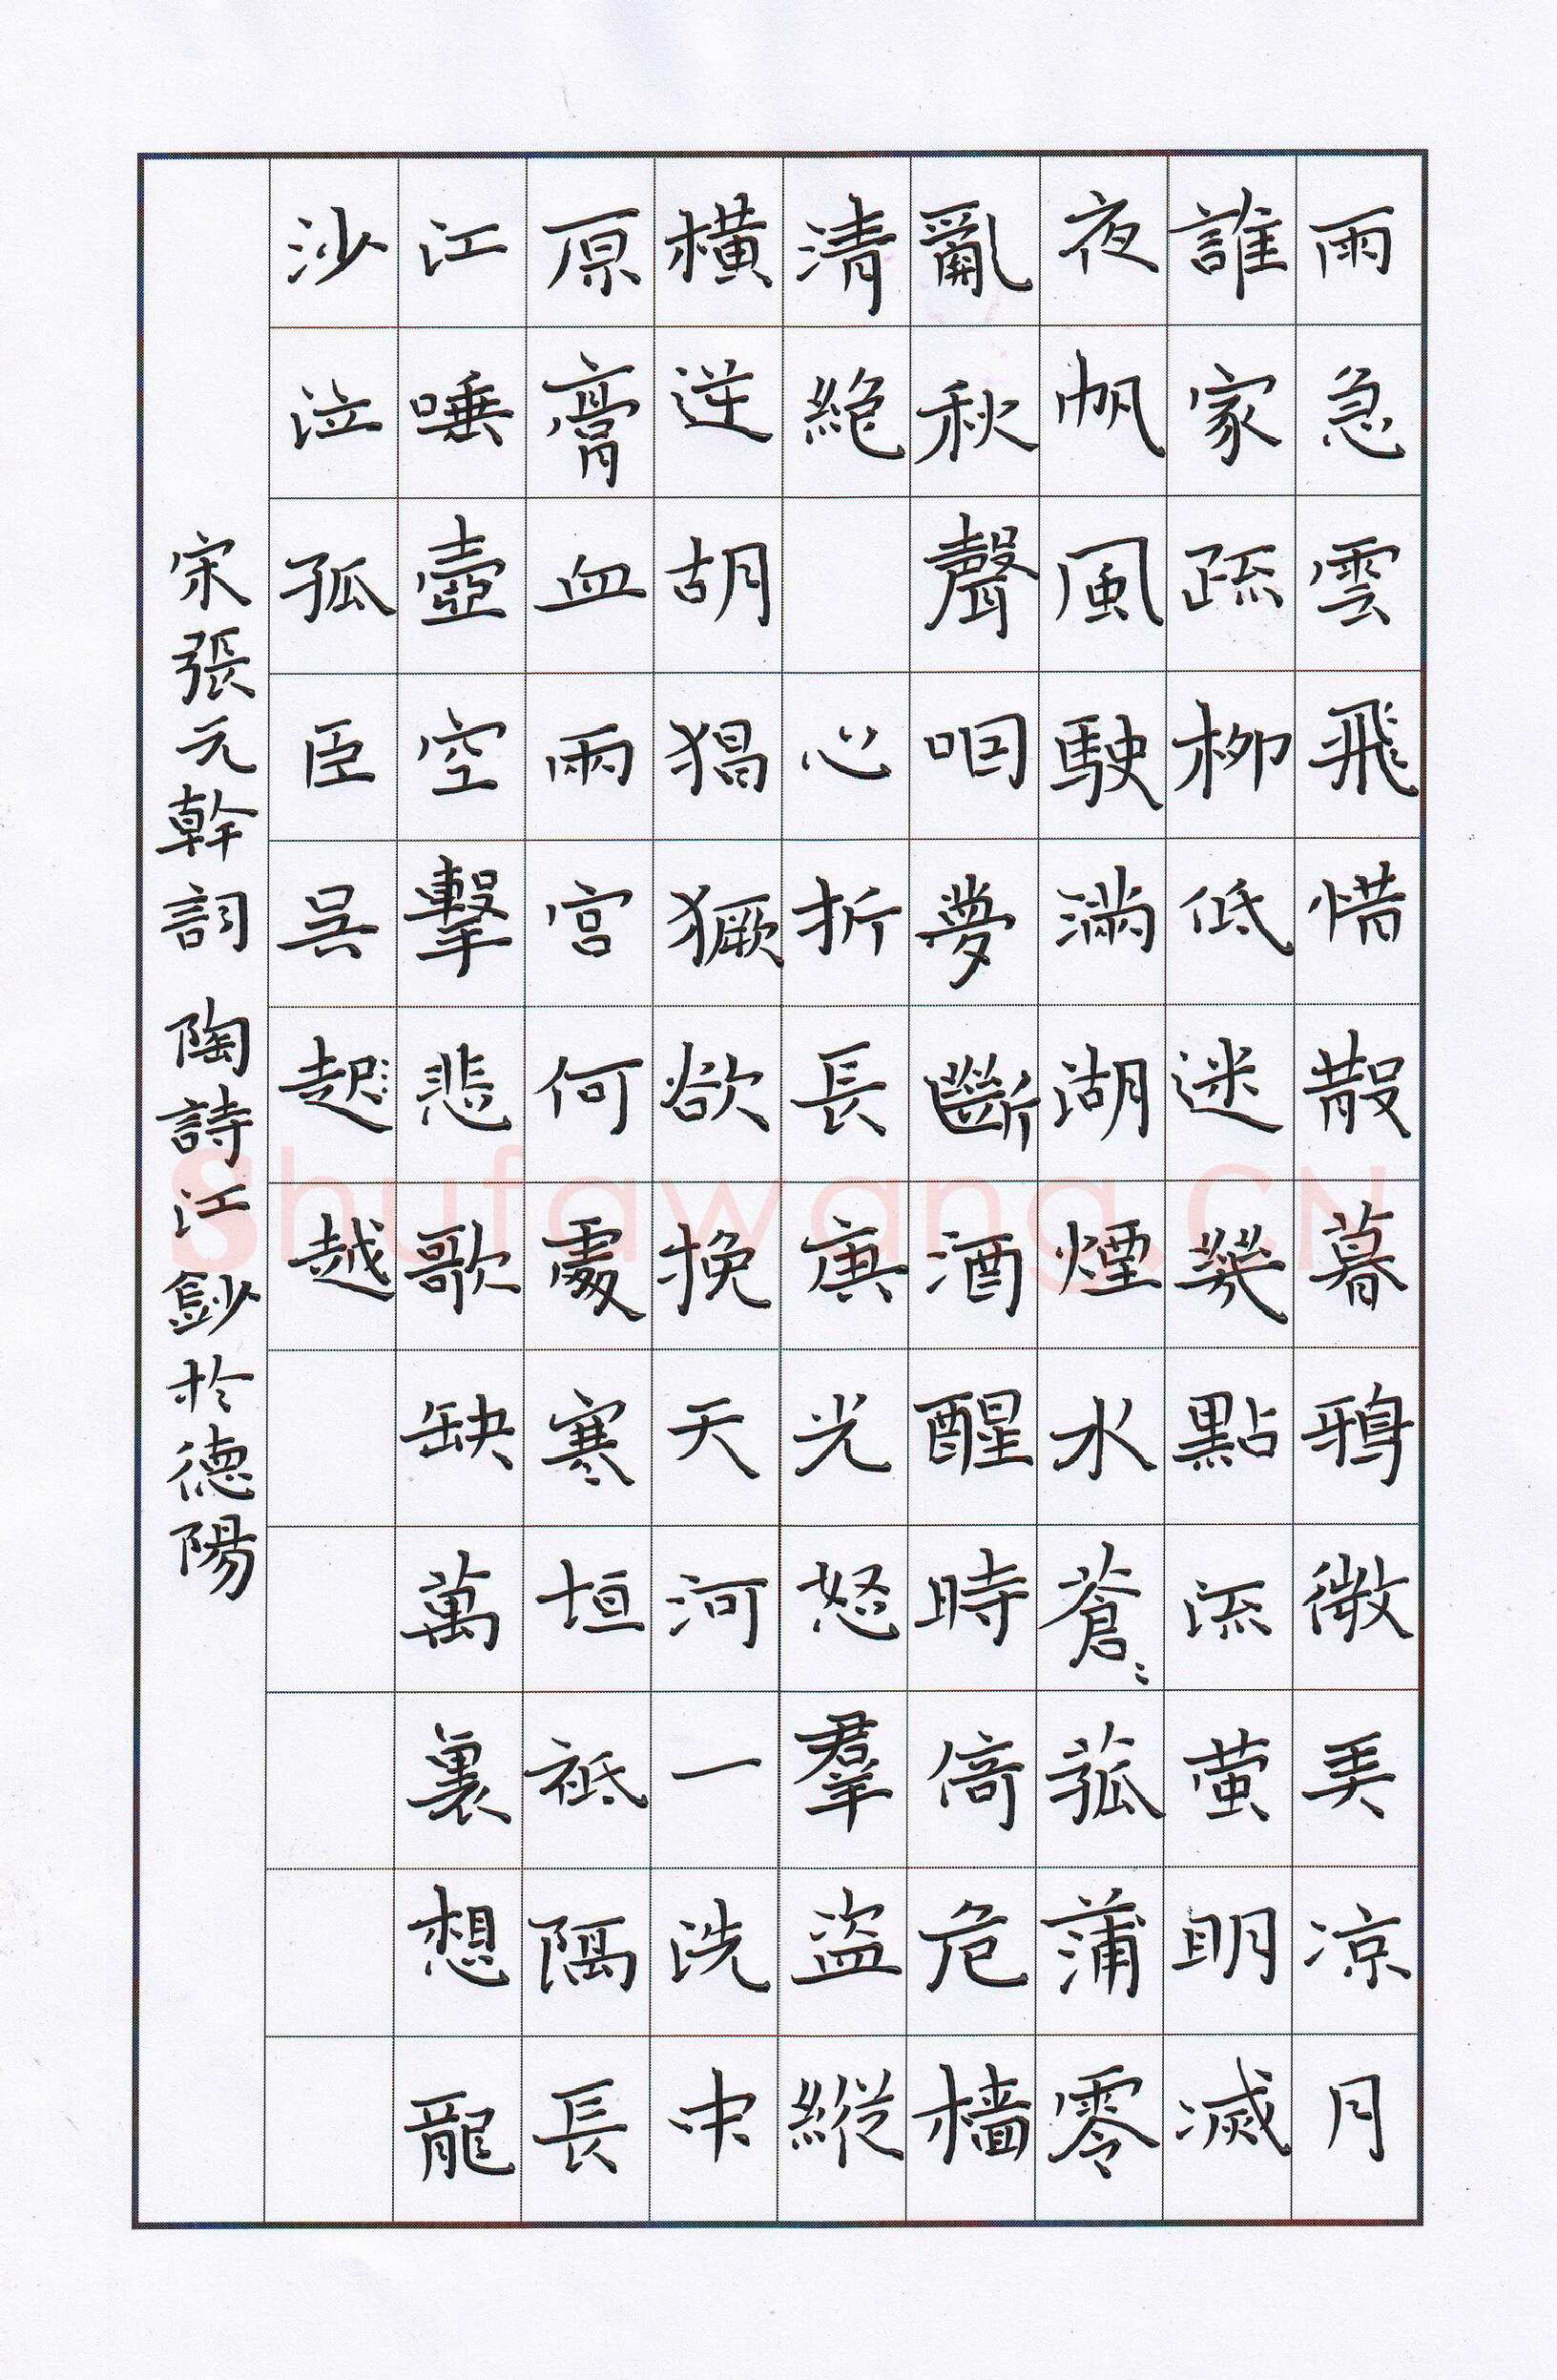 雨急雲飛惜散暮鴉微弄涼月
誰家疏柳低迷幾點流萤明滅
夜帆風駛滿湖煙水蒼〻菰蒲零
亂秋聲咽夢斷酒醒時倚危檣
清絶 心折長庚光怒羣盜縱
橫逆胡猖獗欲挽天河一洗中
原膏血雨宮何處寒垣祗隔長
江唾壺空擊悲歌缺萬裏想龍
沙泣孤臣吳起越
宋張元幹詞 陶詩江鈔於德陽
Shufawang.CN